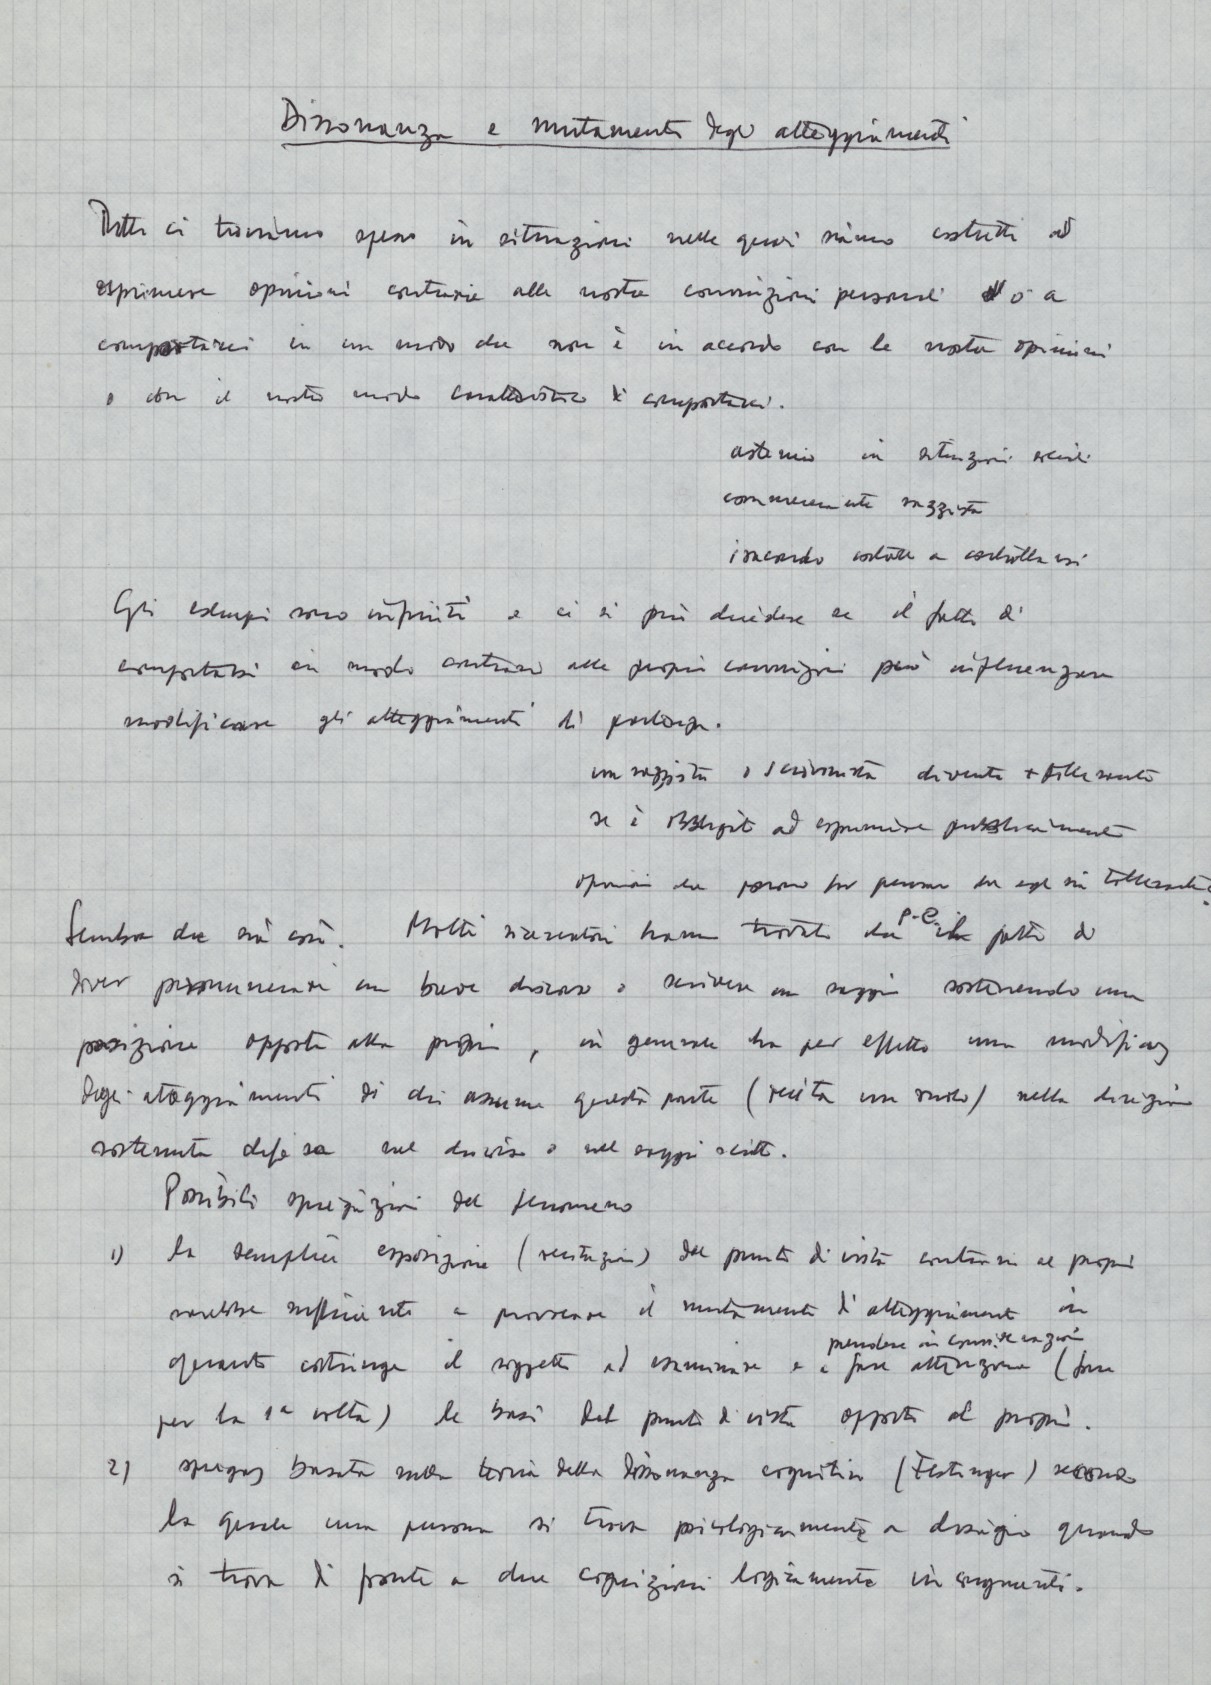 Dissonanza e mutamenti degli atteggiamenti
Tutti ci troviamo spesso in situazioni nelle quali siamo costretti ad
esprimere opinioni contrarie alle nostre convinzioni personali o a
comportarci in un modo che non è in accordo con le nostre opinioni
o con il nostro modo caratteristico di comportarci.
astemio in situazioni sociali
commerciante razzista
iracondo costretto a controllarsi
Gli esempi sono infiniti e ci si può chiedere se il fatto di
comportarsi in modo contrario alle proprie convinzioni può influenzare
modificare gli atteggiamenti di partenza.
un razzista o sciovinista diventa + tollerante
se è obbligato ad esprimere pubblicamente
opinioni che possono far pensare che egli sia tollerante?
Sembra che sia così. Molti ricercatori hanno trovato che il fatto di
dover pronunciare un breve discorso o scrivere un saggio sostenendo una
posizione opposta alla propria, in generale ha per effetto una modificaz
degli atteggiamenti di chi assume questa parte (recita un ruolo) nella direzione
sostenuta difesa nel discorso o nel saggio scritto.
Possibili spiegazioni del fenomeno
1) la semplice esposizione (recitazione) del punto di vista contrario al proprio
sarebbe sufficiente a provocare il mutamento d'atteggiamento in
prendere in considerazione
quanto costringe il soggetto ad esaminare e a fare attenzione (forse
per la 1a volta) le basi del punto di vista opposto al proprio.
2) spiegaz basata sulla teoria della dissonanza cognitiva (Festinger) secondo
la quale una persona si trova psicologicamente a disagio quando
si trova di fronte a due cognizioni logicamente incongruenti.